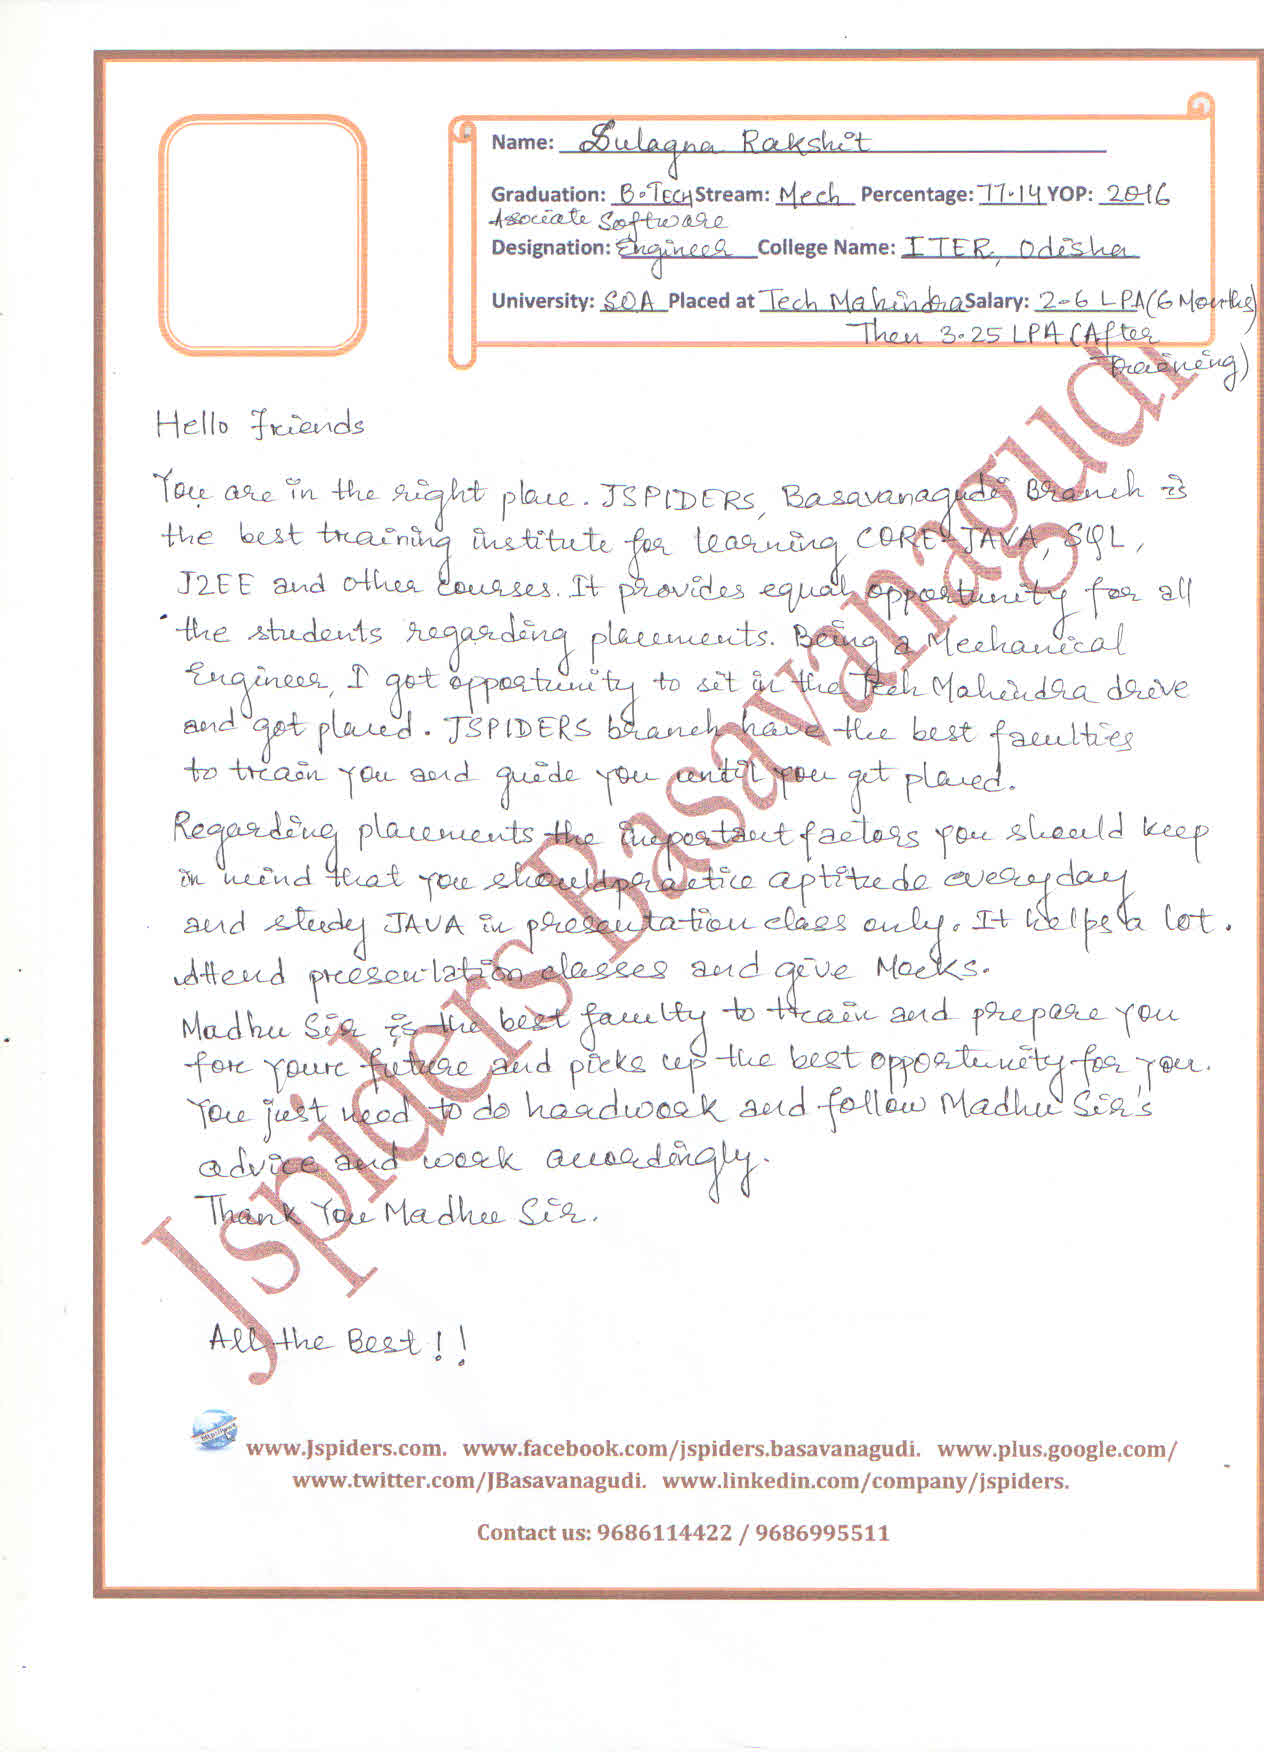 Name: Sulagna Rakshit
Graduation: B.TECH Stream: Mech Percentage: 77.14 YOP: 2016
Asociate Software
Designation: Engineer College Name: ITER, Odisha
University: SOA Placed at Tech Mahindra Salary: 2-6 LPA (6 Months)
Then 3.25 LPA (After
training)
Hello friends
You are in the right place. JSPIDERS, Basavanagudi Branch is
the best training institute for learning CORE JAVA, SQL,
J2EE and other courses. It provides equal opportunity for all
the students regarding placements. Being a Mechanical
Engineer, I got opportunity to sit in the Tech Mahindra drive
and got placed. JSPIDERS branch have the best faculties
to train you and guide you until you get placed.
Regarding placements the important factors you should keep
in mind that you should practice aptitude everyday
and study JAVA in presentation class only. It helps a lot.
Attend presentation classes and give Mocks.
Madhu Sir is the best faculty to train and prepare you
for your future and picks up the best opportunity for you.
You just need to do hardwork and follow Madhu Sir's
advice and work accordingly.
Thank You Madhu Sir.
All the Best!!
Jspiders Basavanagudi
http://www
www.Jspiders.com. www.facebook.com/jspiders.basavanagudi. www.plus.google.com/
www.twitter.com/JBasavanagudi. www.linkedin.com/company/jspiders.
Contact us: 9686114422 / 9686995511